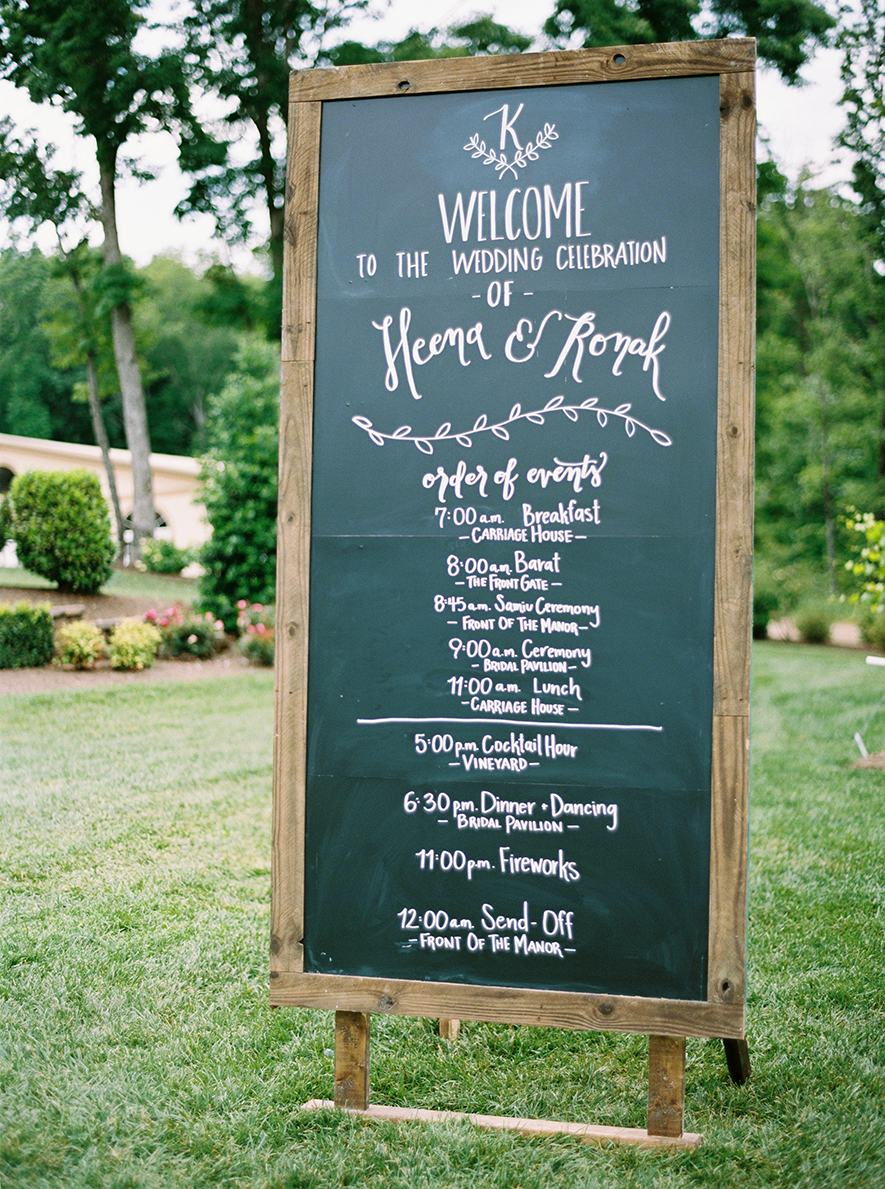 K
WELCOME
TO THE WEDDING CELEBRATION
- OF -
Heena & Ronak
order of events
7:00 a.m. Breakfast
- CARRIAGE HOUSE -
8:00 a.m. Barat
- THE FRONT GATE -
8:45 a.m. Samiu Ceremony
- FRONT OF THE MANOR -
9:00 a.m. Ceremony
- BRIDAL PAVILION -
11:00 a.m. Lunch
- CARRIAGE HOUSE -
5:00 p.m. Cocktail Hour
- VINEYARD -
6:30 p.m. Dinner + Dancing
- BRIDAL PAVILION -
11:00 p.m. Fireworks
12:00 a.m. Send-Off
- FRONT OF THE MANOR -